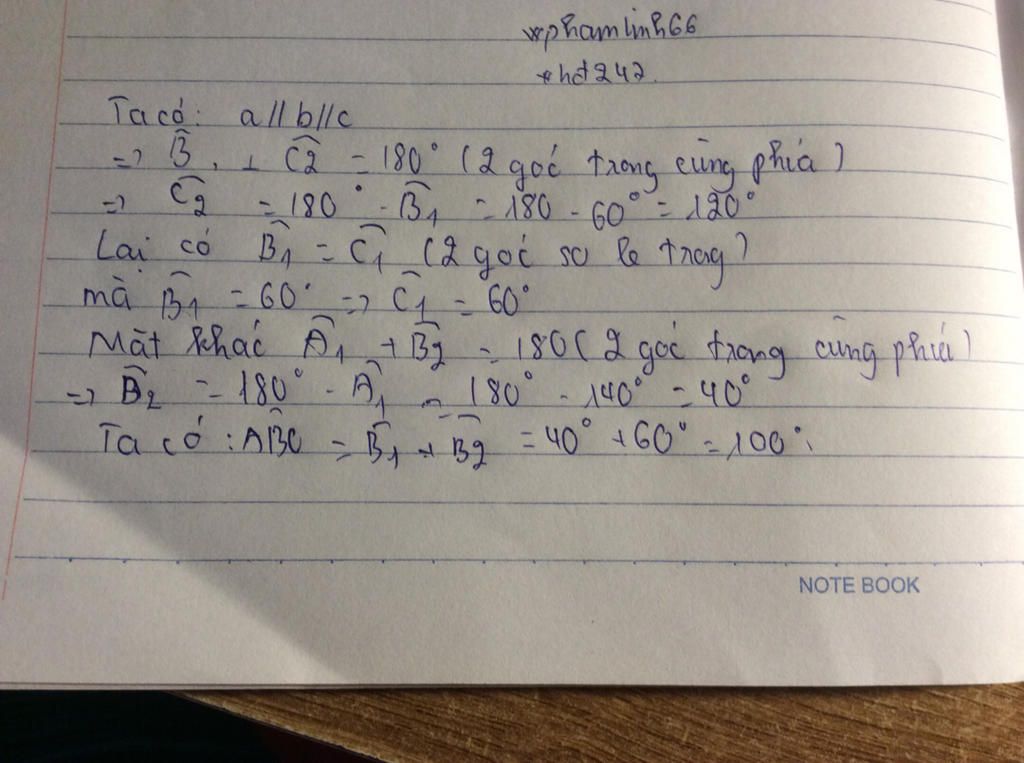 *phamlinh66
*hd247.
Ta có: a//b//c
=> B̂₁ + Ĉ2 = 180° (2 goć trong cùng phiá)
=> Ĉ2 = 180° - B̂1 = 180 - 60° = 120°
Lai có B̂1 = Ĉ1 (2 goć so le trog)
mà B̂1 = 60° => Ĉ1 = 60°
Mặt khác Â1 + B̂2 = 180 (2 goć trong cùng phiá)
=> B̂2 = 180° - Â1 = 180° - 140° = 40°
Ta có: ABC = B̂1 + B̂2 = 40° + 60° = 100°.
NOTE BOOK